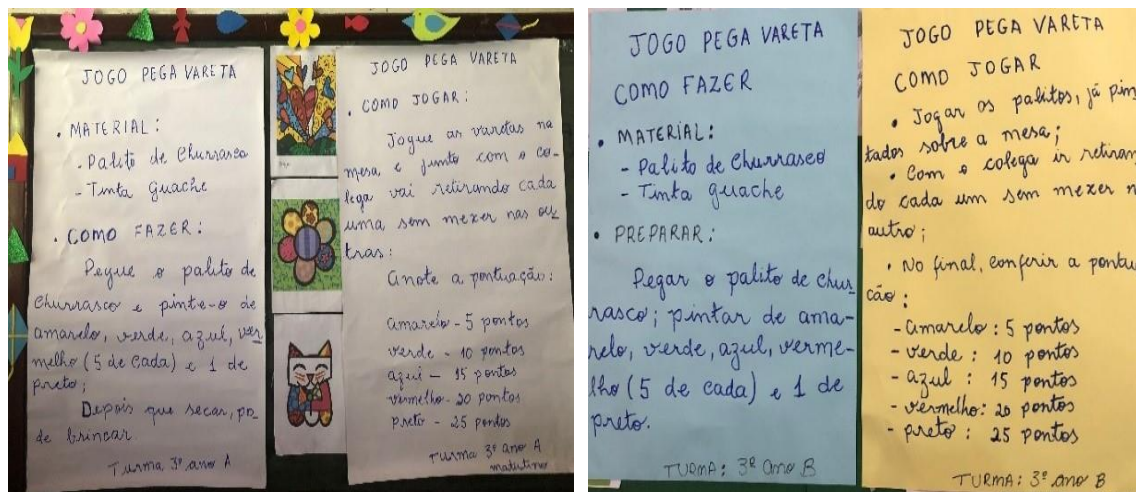 JOGO PEGA VARETA
• MATERIAL:
- Palito de Churrasco
- Tinta guache
• COMO FAZER:
Pegue o palito de
churrasco e pinte-o de
amarelo, verde, azul, ver
melho (5 de cada) e 1 de
preto;
Depois que secar, po
de brincar.
Turma 3º ano A
JOGO PEGA VARETA
• COMO JOGAR:
Jogue as varetas na
mesa e junto com o co-
lega vai retirando cada
uma sem mexer nas ou
tras:
Anote a pontuação:
amarelo - 5 pontos
verde - 10 pontos
azul - 15 pontos
vermelho - 20 pontos
preto - 25 pontos
Turma 3º ano A
matutino
JOGO PEGA VARETA
COMO FAZER
• MATERIAL:
- Palito de Churrasco
- Tinta guache
• PREPARAR:
Pegar o palito de chur
rasco; pintar de ama-
relo, verde, azul, verme-
lho (5 de cada) e 1 de
preto.
TURMA: 3º ano B
JOGO PEGA VARETA
COMO JOGAR
• Jogar os palitos, já pin
tados sobre a mesa;
• Com o colega ir retiran
do cada um sem mexer n
outro;
• No final, conferir a pontu
ação:
- amarelo: 5 pontos
- verde: 10 pontos
- azul: 15 pontos
- vermelho: 20 pontos
- preto: 25 pontos
TURMA: 3º ano B